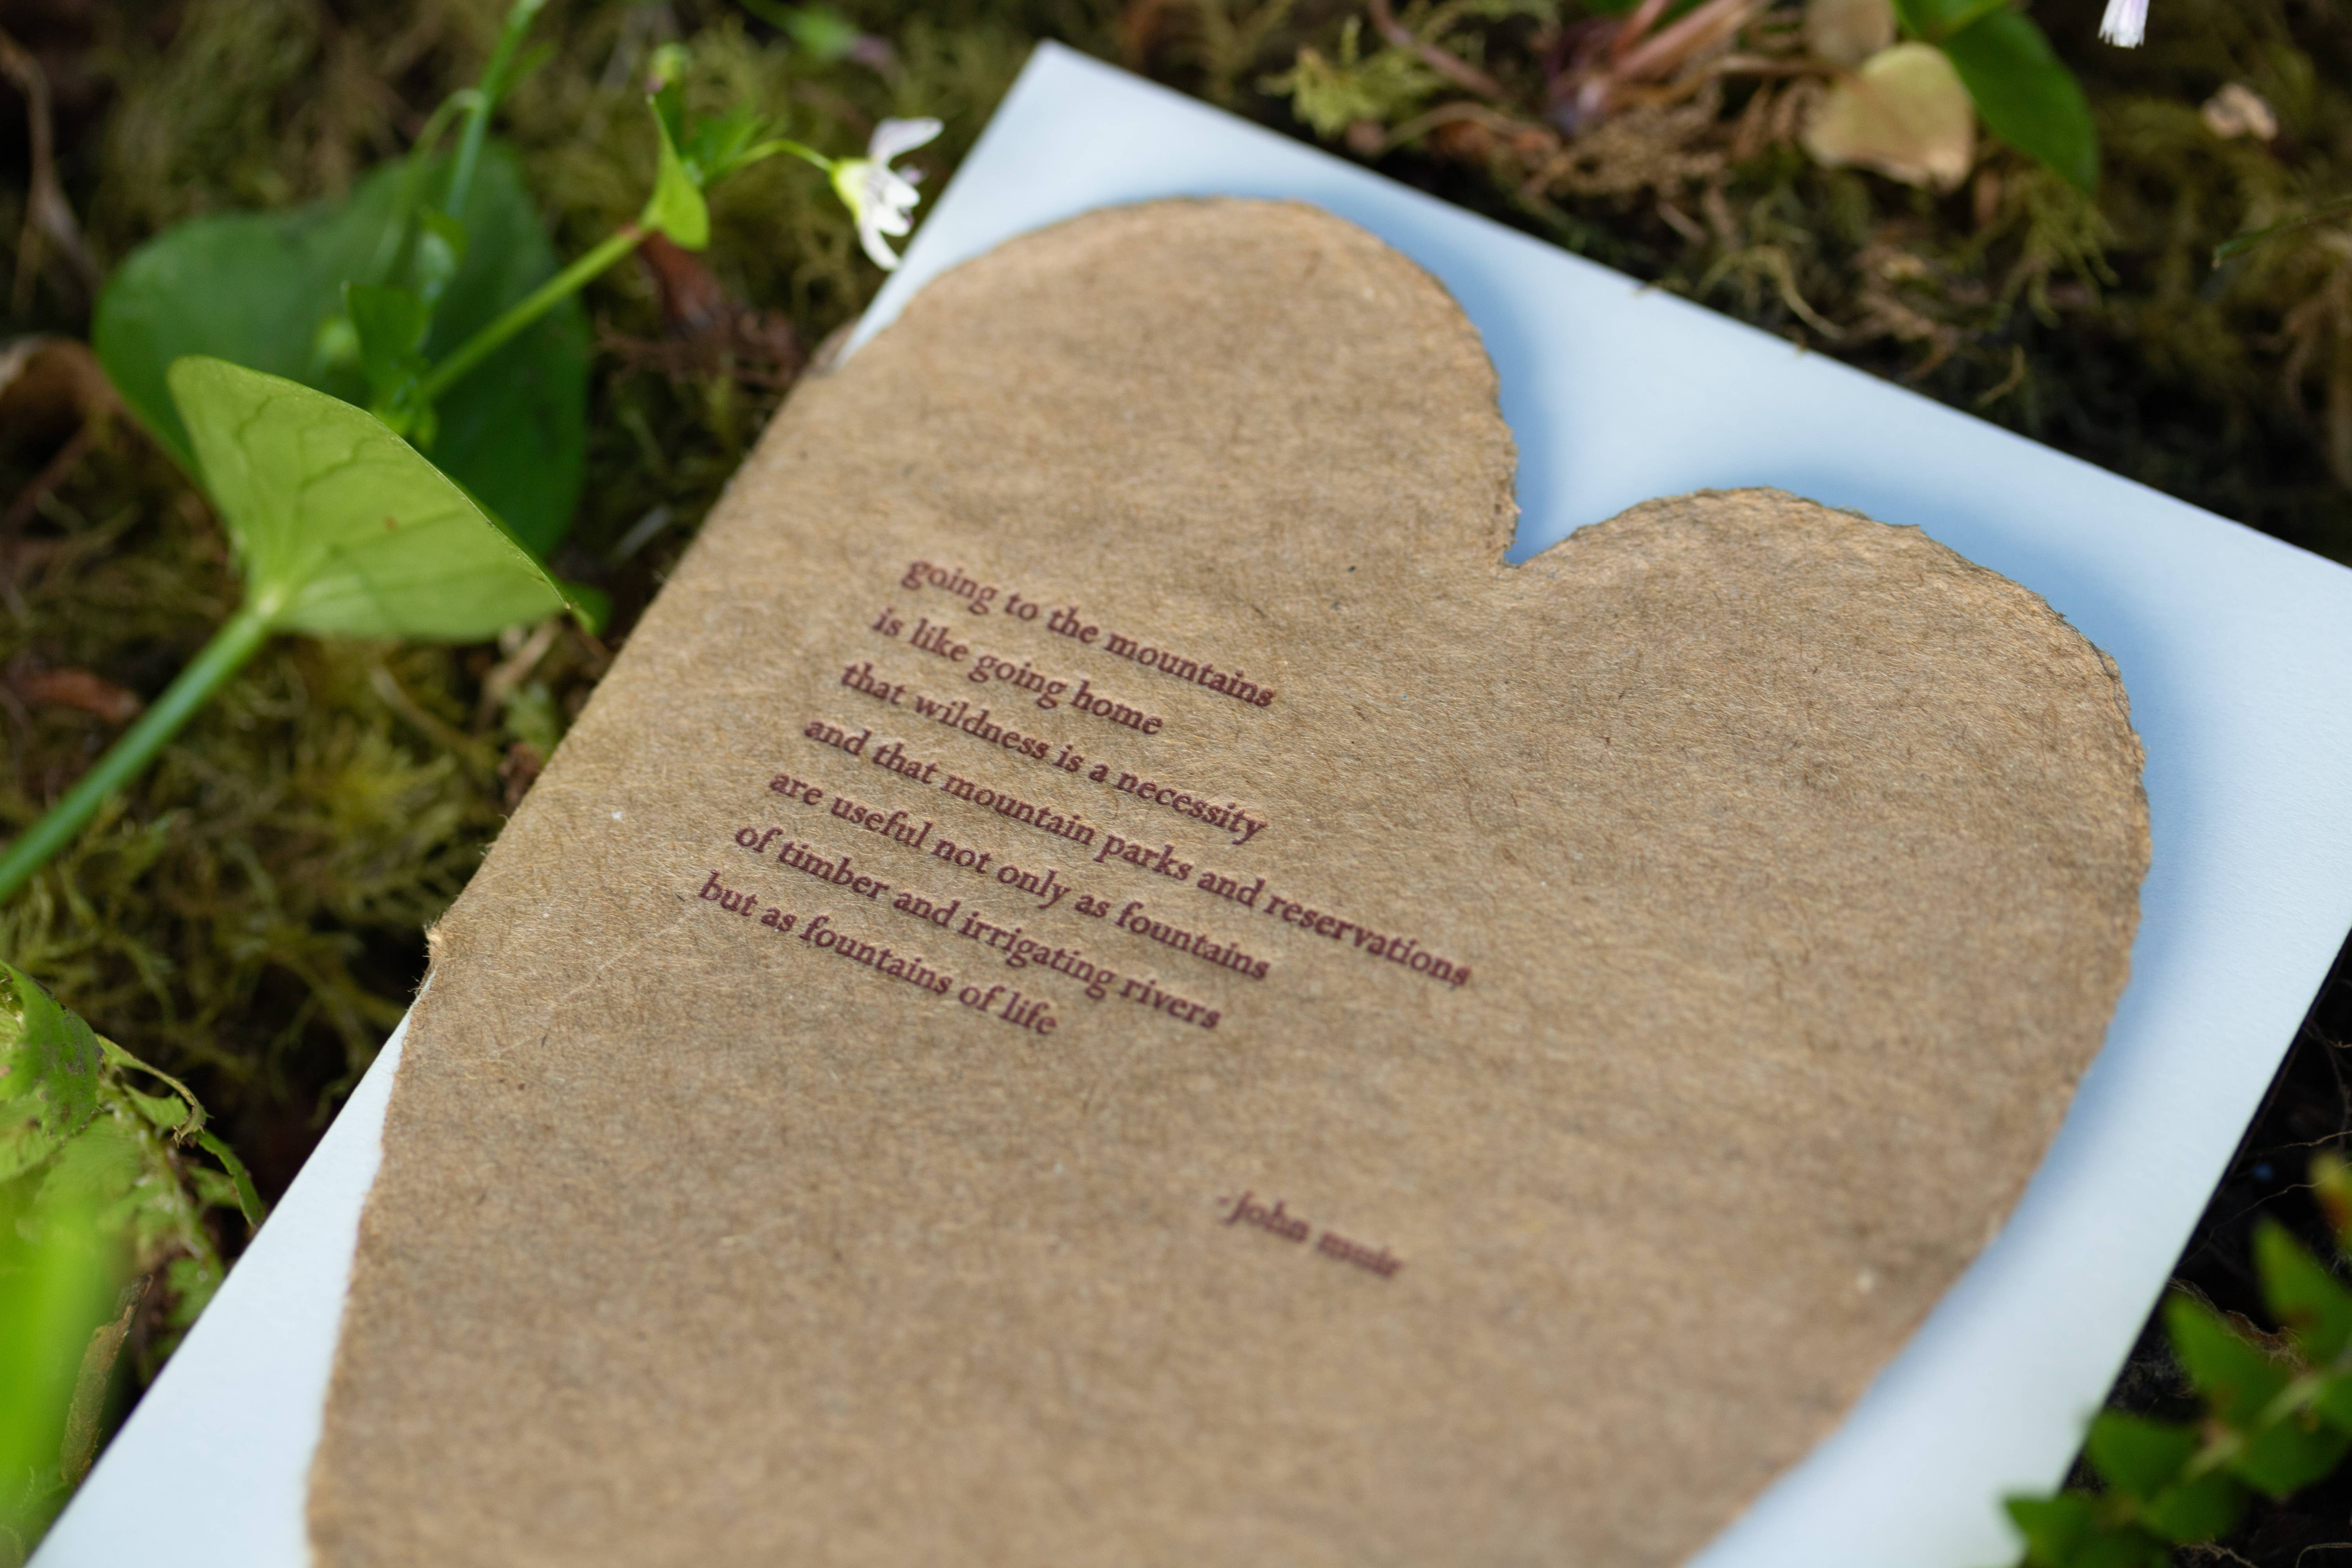 going to the mountains
is like going home
that wildness is a necessity
and that mountain parks and reservations
are useful not only as fountains
of timber and irrigating rivers
but as fountains of life
-john muir